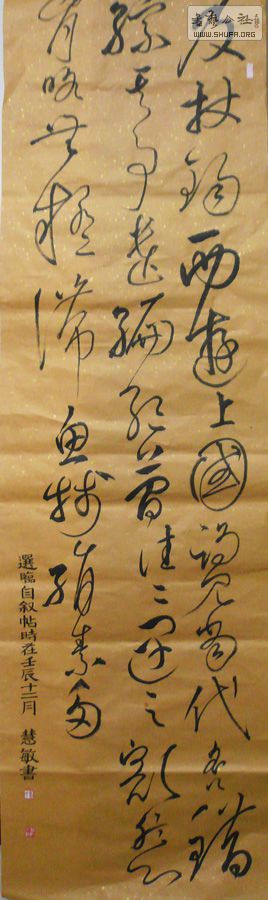 笈杖錫西遊上國謁見當代名公錯
綜其事遺編絕簡往往遇之豁然心
胸略無疑滯魚箋絹素多
選臨自叙帖時在壬辰十二月 慧敏書
書藝公社
WWW.SHUFA.ORG